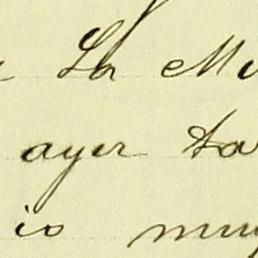 La Mu
ayer ta
io muy